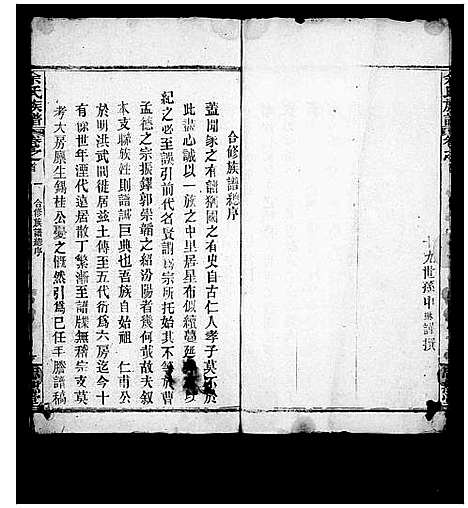 十九世孫申謹撰
合修族譜總序
蓋聞家之有譜猶國之有史自古仁人孝子莫不於
此盡心誠以一族之中里居星布似續蔓延
紀之必至誤引前代名賢謂為宗所托始其不等於曹
孟德之宗振鐸郭崇韜之紹汾陽者幾何哉故夫叙
本支聯族姓則譜誠巨典也吾族自始祖 仁甫公
於明洪武間徙居茲土傳至五代衍為六房迄今十
有餘世年湮代遠居散丁繁漸至譜牒無稽宗支莫
考大房廩生錫桂公憂之慨然引為己任手謄譜稿
余氏族譜 卷之首 一 合修族譜總序
余氏族譜 卷之首